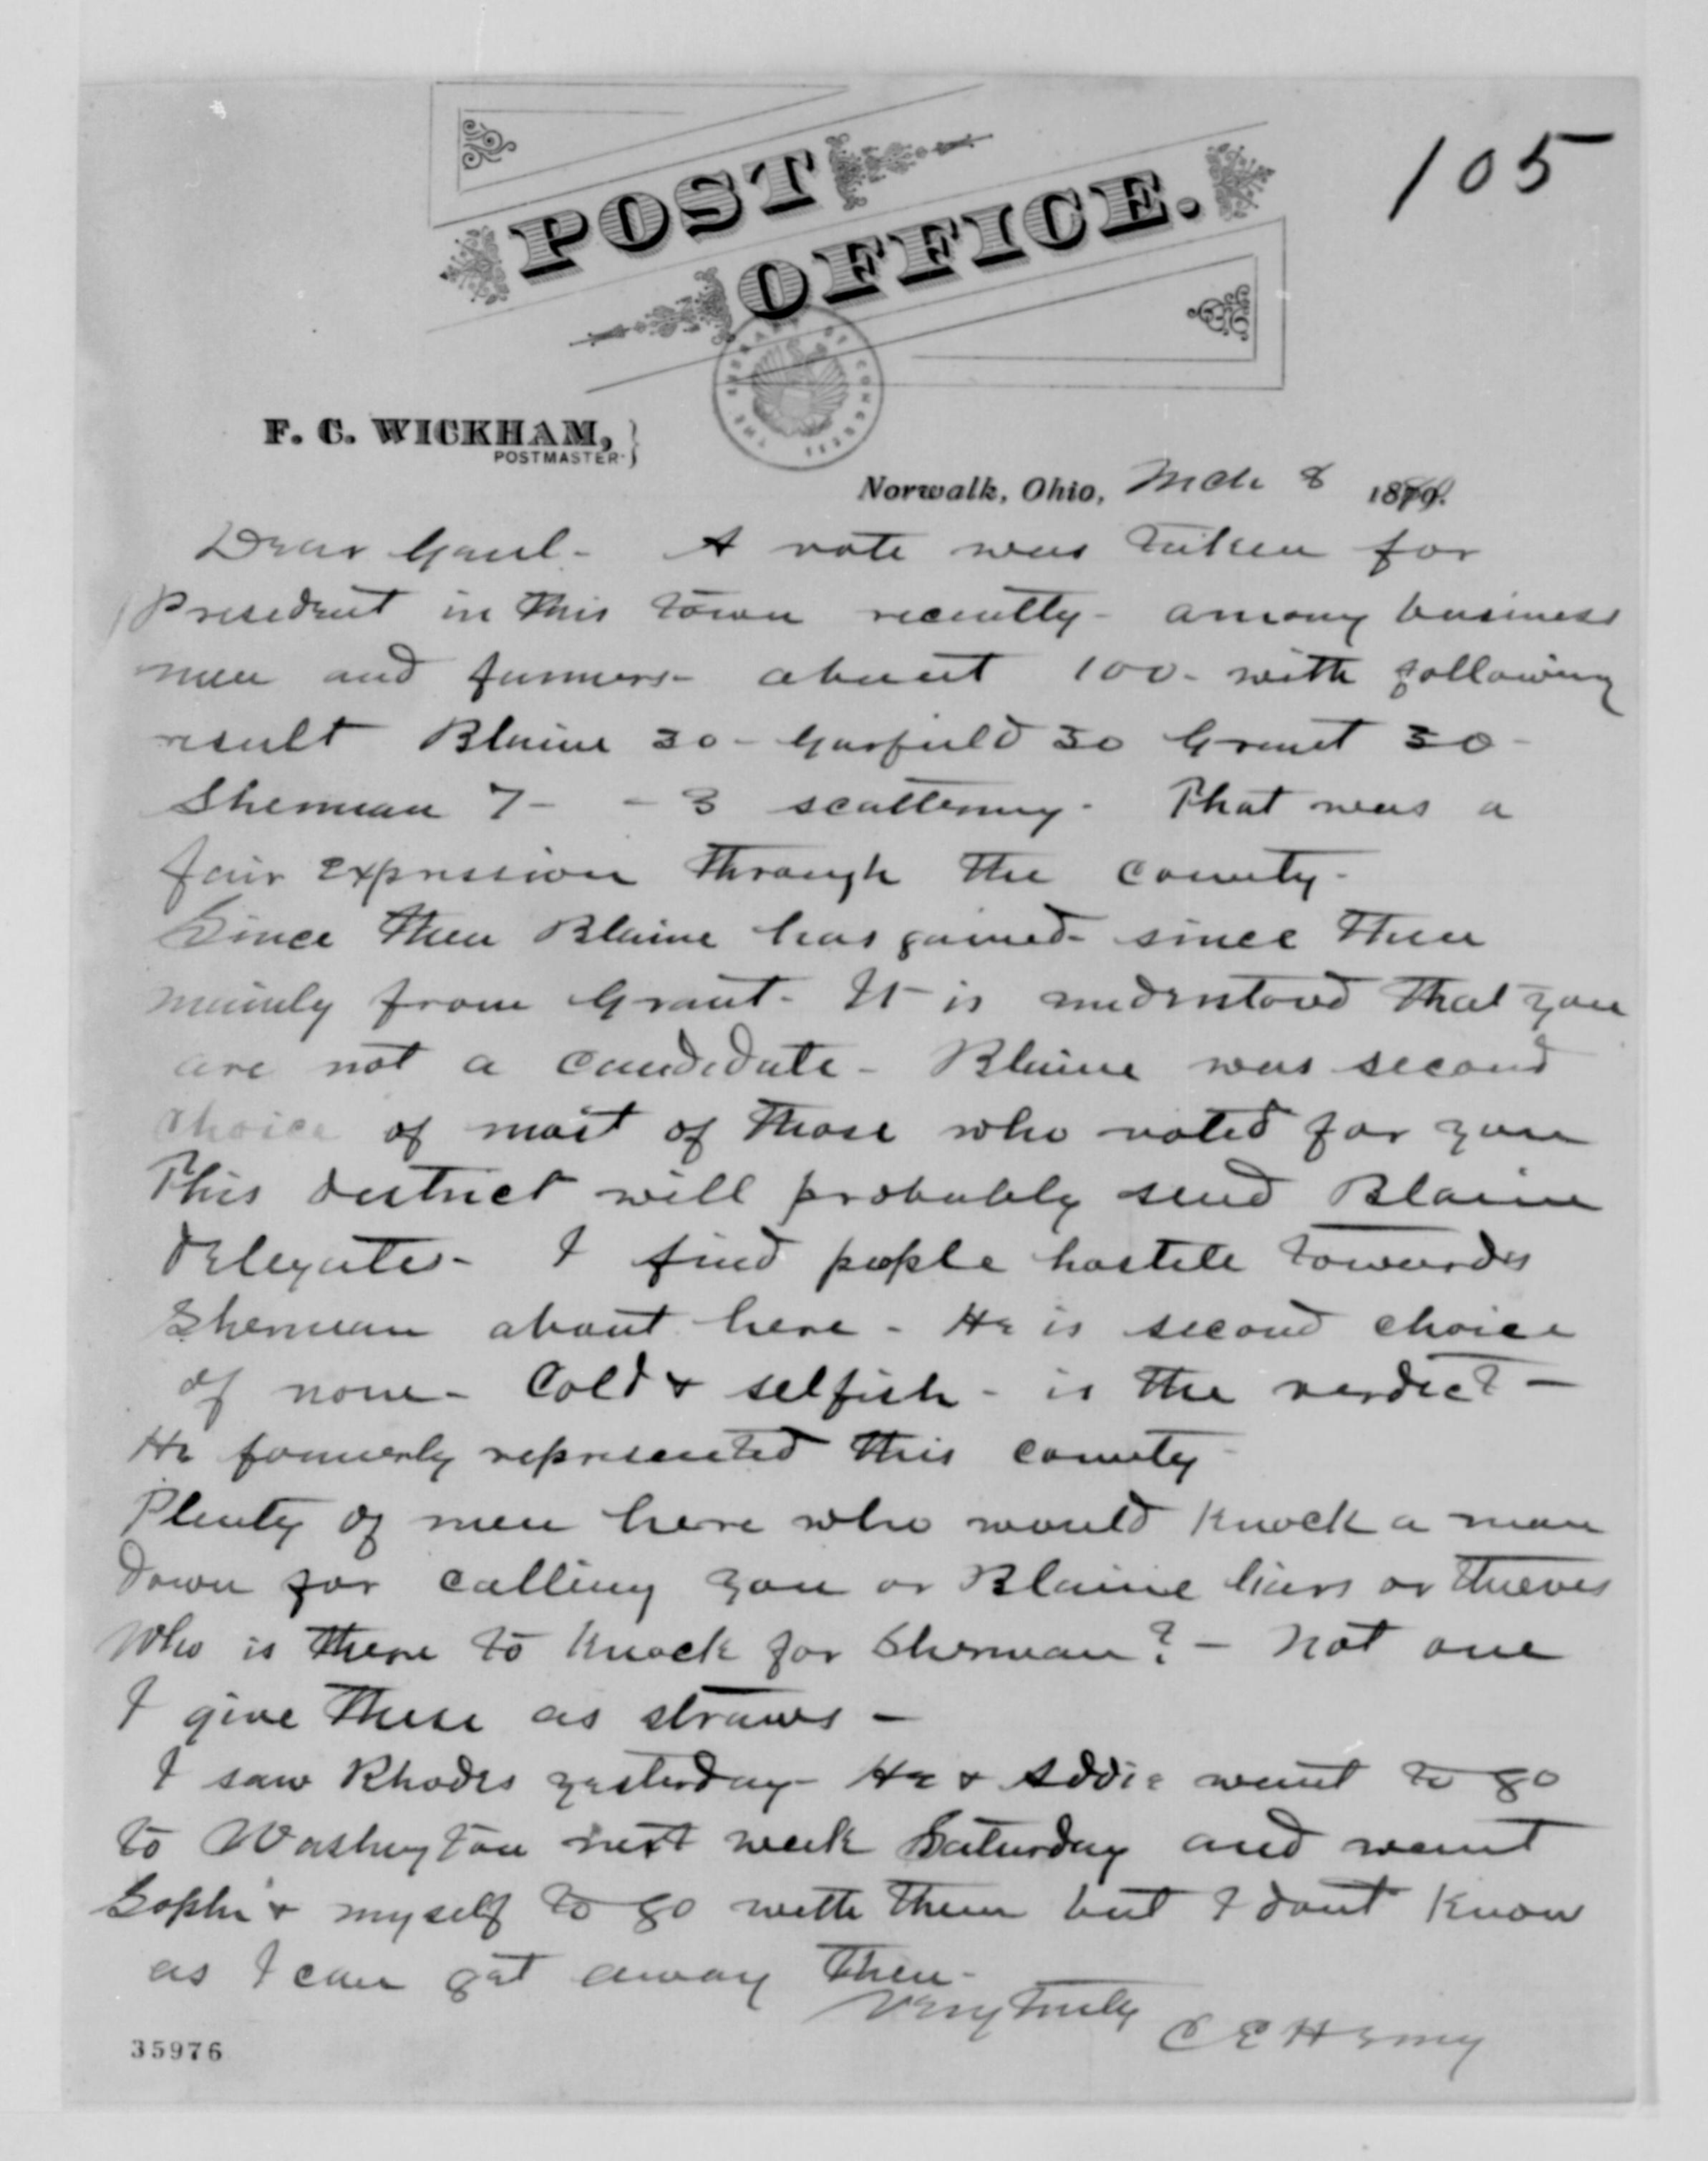 105
POST
OFFICE.
THE LIBRARY OF CONGRESS
F. C. WICKHAM,
POSTMASTER.
Norwalk, Ohio, Mch 8 18
Dear Genl- A vote was taken for
President in this town recently- among business
men and farmers- about 100- with following
result Blaine 30- Garfield 30 Grant 30-
Sherman 7- - 3 scattering- That was a
fair expression through the county-
Since then Blaine has gained- since then
mainly from Grant- It is understood that you
are not a candidate- Blaine was second
choice of most of those who voted for you
This district will probably send Blaine
delegates- I find people hostile towards
Sherman about here- He is second choice
of none- Cold & selfish- is the verdict-
He formerly represented this county-
Plenty of men here who would knock a man
down for calling you or Blaine liars or thieves
Who is there to knock for Sherman? - Not one
I give these as straws-
I saw Rhodes yesterday- He & Addie want to go
to Washington next week Saturday and want
Sophi & myself to go with them but I dont know
as I can get away then-
Very truly
C E Henry
35976